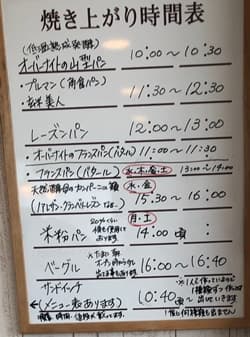 焼き上がり時間表
(低温熟成発酵)
オーバーナイトの山型パン 10:00〜10:30
・プルマン(角食パン)
・玄米美人 11:30〜12:30
レーズンパン 12:00〜13:00
・オーバーナイトのフランスパン(バタール) 11:00〜11:30
フランスパン(バタール) 火・木・金・土 13:00〜14:00
天然酵母のカンパーニュ類 水・金
15:30〜16:00
米粉パン 20%くらい 月・土
14:00頃
ベーグル 16:00〜16:40
サンドイッチ
←(メニュー表あります) 10:40頃〜